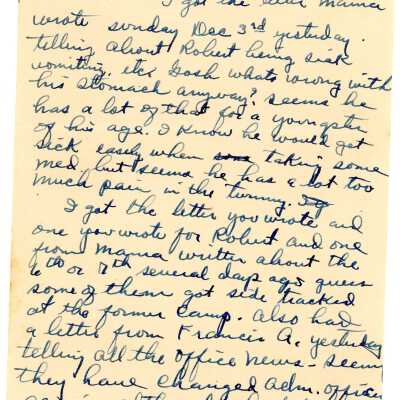 I got the letter Mama
wrote sunday Dec 3rd yesterday.
telling about Robert being sick
vomiting, etc. Gosh whats wrong with
his stomach anyway? seems he
has a lot of that for a youngster
of his age. I know he would get
sick easily when taking some
med. but seems he has a lot too
much pain in the tummy.
I got the letter you wrote and
one you wrote for Robert and one
from Mama written about the
6th or 7th several days ago guess
some of them got side tracked
at the former camp. Also had
a letter from Francis A. yesterday
telling all the office news - seems
they have changed Adm. officer